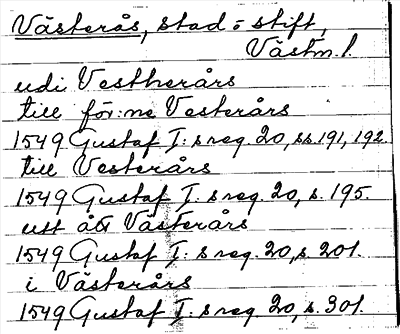 Västerås, stad o stift,
Västm. l.
udi Vestherårs
till för:ne Vesterårs
1549 Gustaf I:s reg. 20, ss. 191, 192.
till Vesterårs
1549 Gustaf I:s reg. 20, s. 195.
ust ått Västerårs
1549 Gustaf I:s reg. 20, s. 201.
i Västerårs
1549 Gustaf I:s reg. 20, s. 301.